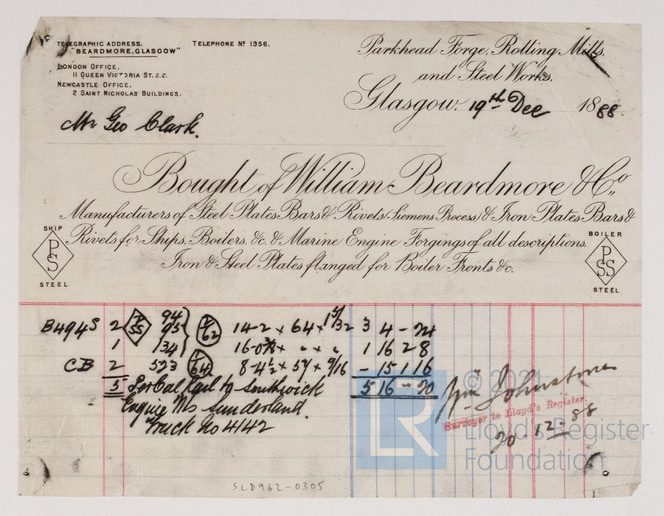 TELEGRAPHIC ADDRESS.
"BEARDMORE, GLASGOW"
TELEPHONE No 1356.
LONDON OFFICE,
11 QUEEN VICTORIA ST. E.C.
NEWCASTLE OFFICE,
2 SAINT NICHOLAS' BUILDINGS.
Parkhead Forge, Rolling Mills,
and Steel Works,
Glasgow. 19th Dec 1888.
Mr Geo Clark.
Bought of William Beardmore & Co.
Manufacturers of Steel Plates Bars & Rivets (Siemens Process) & Iron Plates Bars &
Rivets for Ships, Boilers, &c. & Marine Engine Forgings of all descriptions.
Iron & Steel Plates flanged for Boiler Fronts &c.
SHIP
PS
STEEL
BOILER
PSS
STEEL
B494S 2 PSS 94 95 62 14-2 x 64 x 15/32 3 4 - 24
1 134 16 1 16 2 8
CB 2 523 64 8-4½ x 9/16 - 15 1 16
5 Per Cal. Rail to Southwick 5 16 - 20
Engine Wks Sunderland.
Truck No 4142
Wm Johnstone
Surveyor to Lloyd's Register.
20-12-88
© 2021
LR
Lloyd's Register
Foundation
SLD962-0305